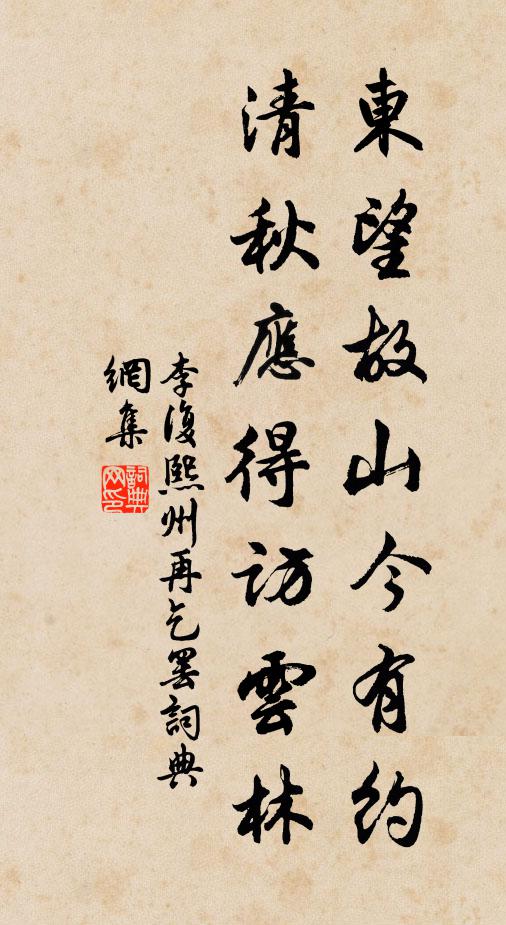 東望故山今有約
清秋應得訪雲林
李復熙州再乞罢詞典
網集
詞典
网印